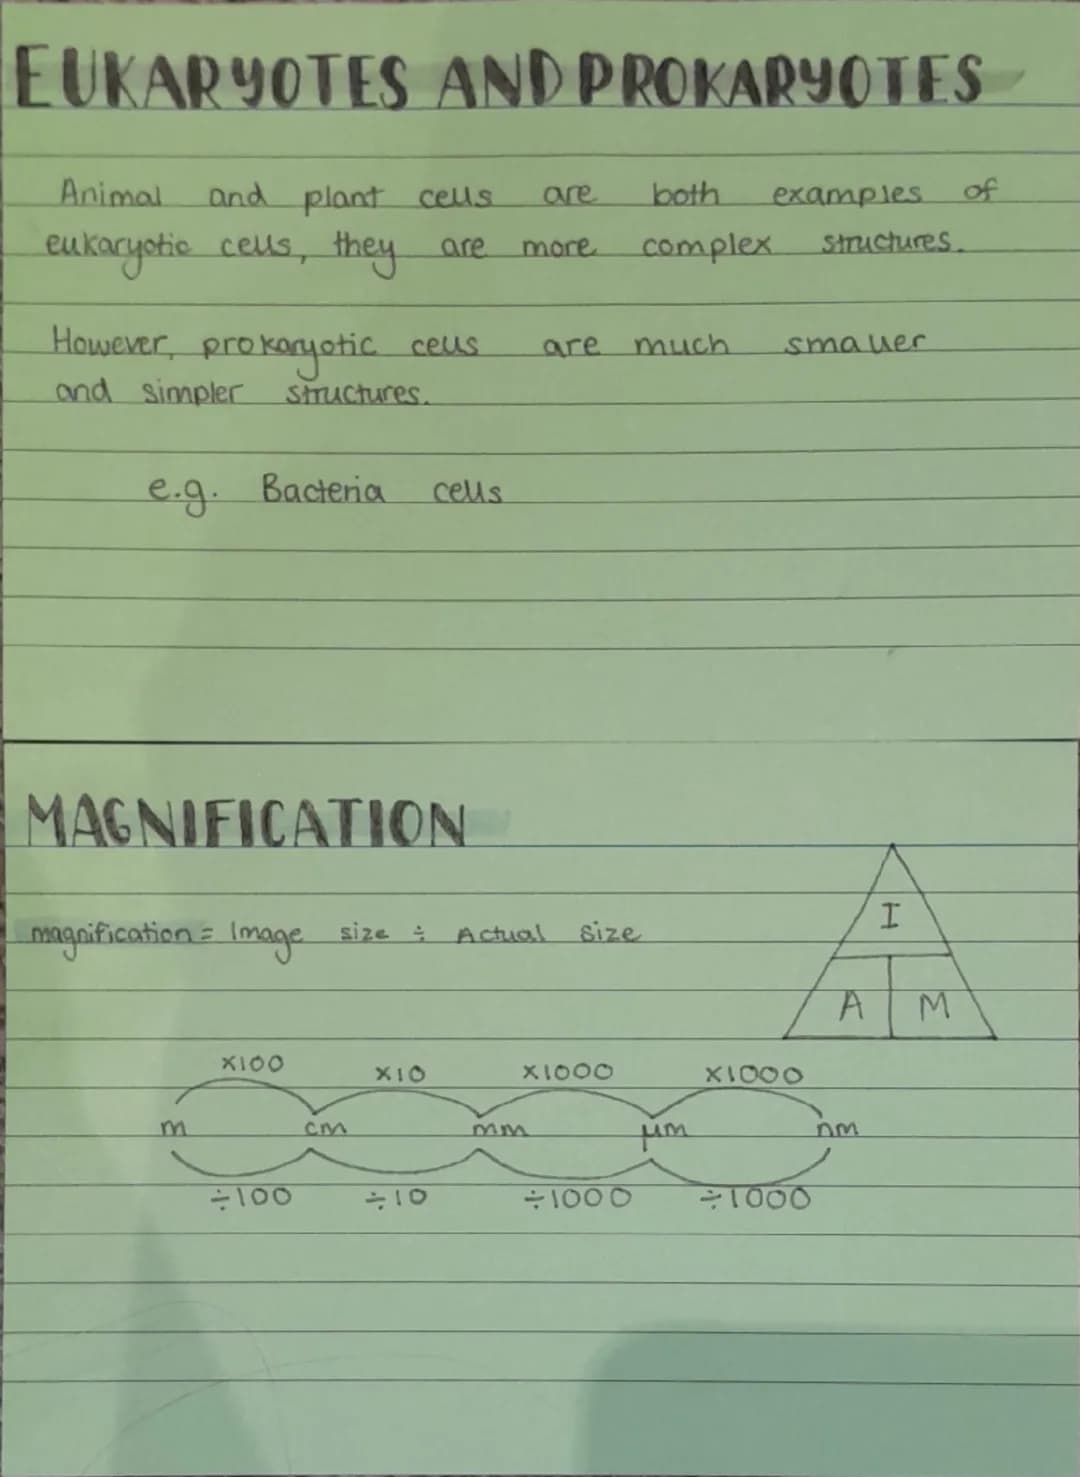 EUKARYOTES AND PROKARYOTES
Animal and plant cells are both examples of
eukaryotic cells, they are more complex structures.
However, prokaryotic cells are much smaller
and simpler structures.
e.g. Bacteria cells
MAGNIFICATION
magnification = Image size ÷ Actual size
I
A M
x100 x10 x1000 x1000
m cm mm µm nm
÷100 ÷10 ÷1000 ÷1000